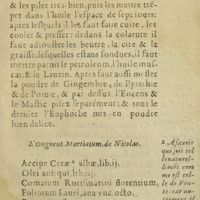 & les piler tres-bien, puis les mettre trẽ-
pet dans l'huile l'espace de sept iours:
apres lesquels il les faut faire cuire, les
couler & presser: dedans la colature il
faut adiouster les beurre, la cire & la
graisse, lesquelles estans fondues, il faut
mettre parmi le petroleum, l'huile mus-
cat, & le Laurin. Apres faut aussi mesler
la poudre de Gingembre, de Pyrethre
& de Poivre, & par dessus l'Encens &
le Mastic pilez separément; & tout le
dernier l'Euphorbe mis en poudre
bien delice.
L'Onguent Martiatum, de Nicolas.
Accipe Ceræ albæ, lib. ij.
Olei antiqui, lib. iij.
Comarum Rorismarini florentum,
Foliorum Lauri, ana vnc. octo.
a Assauoir
qui soit tel